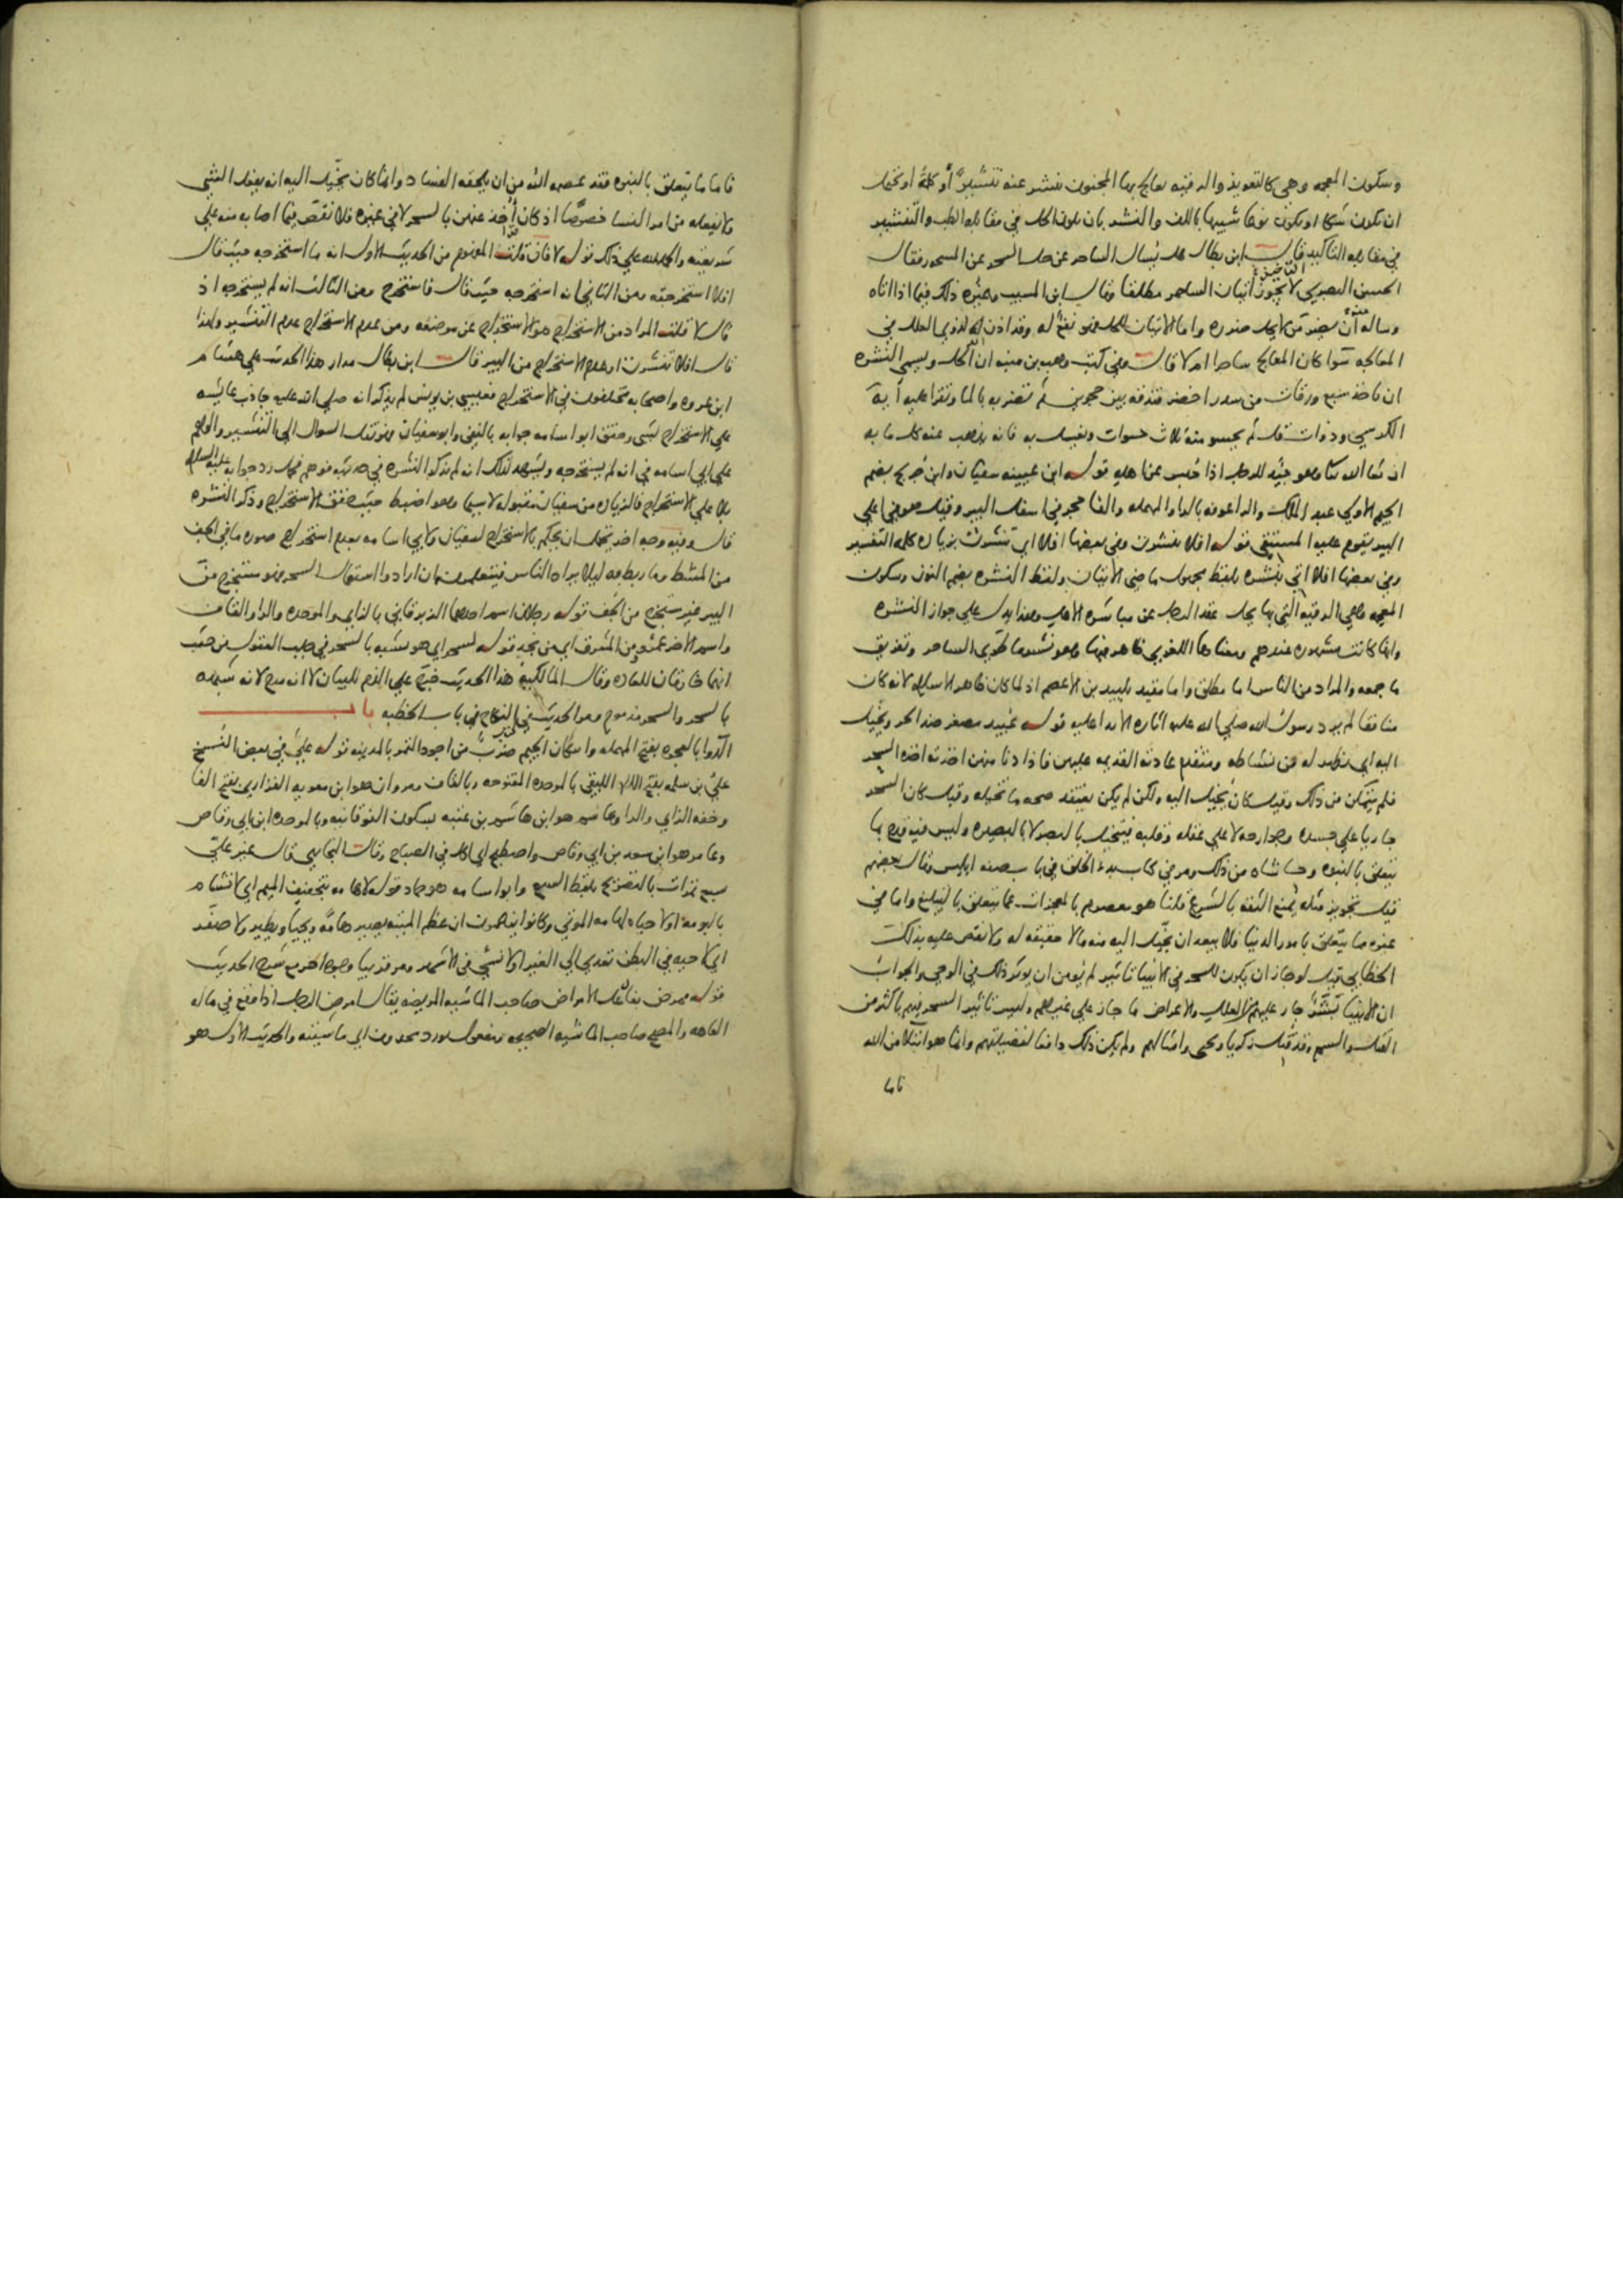 وسكون المعجمه وهي كالتعويذ والرقيه يعالج بها المجنون ينشر عنه تنشيرًا أو كلمة او يحتمل
ان يكون شكا او يكون نوعا شبيها باللف والنشر بان يكون الحل في مقابله الطب والتنشير
في مقابله التاكيد قال ابن بطال هل يسال الساحر عن حل السحر عن المسحور فقال
الحسن البصري لا يجوز اتيان الساحر مطلقا وقال ابن المسيب وغيره ذلك فيما اذا اتاه
وساله ان يضر من لا يحل ضرره واما الاتيان للحل فهو نفع له وقد اذن الله لذوي العلل في
المعالجه سوا كان المعالج ساحرا ام لا قال وفي كتب وهب بن منبه ان الحل ويسمى النشره
ان ياخذ سبع ورقات من سدر اخضر فتدقه بين حجرين ثم تضربه بالما وتقرا عليه آية
الكرسي وذوات قل ثم يحسو منه ثلاث حسوات ويغتسل به فانه يذهب عنه كل ما به
ان شا الله تعا وهو جيد للرجل اذا حبس عن اهله قوله ابن عيينه سفيان وابن جريج بضم
الجيم الاولى عبد الملك والراعوفه بالراو المهمله والفا حجر في اسفل البير وقيل هو في اعلى
البير يقوم عليه المستقى قوله افلا تنشرت وفي بعضها افلا اي تنشرت بزياده كلمه التفسير
وفي بعضها افلا اتي بنشره بلفظ مجهول ماضي الاتيان ولفظ النشره بضم النون وسكون
المعجمه وهي الرقيه التي بها يحل عقد الرجل عن مباشره الاهل وهذا يدل على جواز النشره
وانها كانت مشهوره عندهم ومعناها اللغوي ظاهر فيها وهو نشر ما طوى الساحر وتفريق
ما جمعه والمراد من الناس اما مطلق واما مقيد بلبيد بن الاعصم اذ لما كان ظاهر الاسلام لانه كان
منافقا لم يرد رسول الله صلى الله عليه اثاره الاذا عليه قوله عبيد مصغر ضد الحر ويخيل
اليه اي يظهر له من نشاطه ومتقدم عادته القديمه عليهن فاذا دنا منهن اخذته اخذه السحر
فلم يتمكن من ذلك وقيل كان يخيل اليه ولكن لم يكن يعتقد صحه ما تخيله وقيل كان السحر
جاريا على جسده وجوارحه لا على عقله وقلبه فيتخيل بالبصر لا بالبصيره وليس فيه قدح بما
يتعلق بالنبوه وحاشاه من ذلك ومر في كتاب بدء الخلق في باب صفه ابليس وقال بعضهم
قيل تجويز مثله يمنع الثقه بالشرع قلنا هو معصوم بالمعجزات عما يتعلق بالتبليغ واما في
غيره ما يتعلق بامور الدنيا فلا يبعد ان يخيل اليه منه مالا حقيقه له ولا نقص عليه بذلك
الخطابي قيل لو جاز ان يكون للسحر في الانبيا تاثير لم يومن ان يوثر ذلك في الوحي والجواب
ان الانبيا بشر جاز عليهم من العلل والاعراض ما جاز على غيرهم وليس تاثير السحر فيهم باكثر من
القتل والسم وقد قتل زكريا ويحيى وامثالهم ولم يكن ذلك دافعا لفضيلتهم وانما هو ابتلا من الله
فاما
فاما ما يتعلق بالنبوه فقد عصمه الله من ان يلحقه الفساد وانما كان يخيل اليه انه يفعل الشي
ولا يفعله من امر النسا خصوصًا اذ كان أُخذ عنهن بالسحر لا في غيره فلا نقص فيما اصابه منه على
شريعته والحمد لله على ذلك قوله لا فان قلت المفهوم من الحديث الاول انه ما استخرجه حيث قال
افلا استخرجته ومن الثاني انه استخرجه حيث قال فاستخرج ومن الثالث انه لم يستخرجه اذ
قال لا قلت المراد من الاستخراج هو الاستخراج عن موضعه ومن عدم الاستخراج عدم التنشير ولهذا
قال افلا تنشرت او عدم الاستخراج من البير قال ابن بطال مدار هذا الحديث على هشام
ابن عروه واصحابه مختلفون في الاستخراج فعيسى بن يونس لم يذكر انه صلى الله عليه جاوب عايشه
على الاستخراج بشي وحقق ابو اسامه جوابه بالنفي وابو سفيان نقل السوال الى التنشير والوهم
على ابي اسامه في انه لم يستخرجه ويشهد لذلك انه لم يذكر النشره في حديثه فوهم فجعل رد جوابه عليه السلام
بلا على الاستخراج فالزياده من سفيان مقبوله لا سيما وهو اضبط حيث حقق الاستخراج وذكر النشره
قال وفيه وجه اخر يحتمل ان يحكم بالاستخراج لسفيان ولابي اسامه بعدم استخراج صوره ما في الجف
من المشط وما ربط به ليلا يراه الناس فيتعلمون ان ارادوا استعمال السحر فهو مستخرج من
البير غير مستخرج من الجف قوله رجلان اسم احدهما الزبرقاني بالزاي والموحده والرا والقاف
واسم الاخر عمرو من المشرق اي من نجد قوله لسحر اي هو شبيه بالسحر في جلب العقول من حيث
انها خارقان للعاده وقال المالكيه هذا الحديث خرج على الذم للبيان لا انه مدح لانه شبهه
بالسحر والسحر مذموم ومر الحديث في النكاح في باب الخطبه باب
الدوا بالعجوه بفتح المهمله واسكان الجيم ضرب من اجود التمر بالمدينه قوله علي في بعض النسخ
علي بن سلمه بفتح اللام اللبقي بالموحده المفتوحه وبالقاف ومروان هو ابن معويه الفزاري بفتح الفا
وخفه الزاي والرا وهاشم هو ابن هاشم بن عتبه بسكون الفوقانيه وبالموحده ابن ابي وقاص
وعامر هو ابن سعد بن ابي وقاص واصطبح اي اكل في الصباح وقال البخاري قال غير علي
سبع تمرات بالتصريح بلفظ السبع وابو اسامه هو حماد قوله لا هامه بتخفيف الميم اي لا تشام
بالبومه اولا حياه لهامه الموتى وكانوا يزعمون ان عظم الميت يصير هامّه ويحيا ويطير ولا صفر
اي لا حيه في البطن تعدي الى الغير اولا نسئ في الاشهر ومر قريبا وجوه اخر مع شرح الحديث
قوله ممرض بفاعل الامراض صاحب الماشيه المريضه يقال امرض الرجل اذا وقع في ماله
العاهه والمصح صاحب الماشيه الصحيحه ومفعول يورد محذوف اي ماشيته والحديث الاول هو